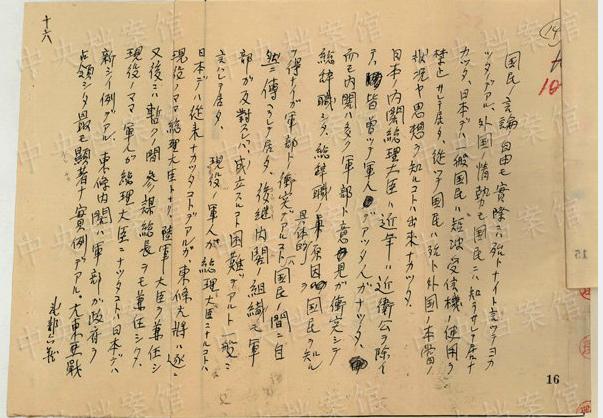 14
10
国民ノ言論自由モ実際ニハ殆トナイト言ツテヨカ
ツタノデアル。外国ノ情勢モ国民ニハ知ラサレテ居ナ
カツタ。日本デハ一般国民ハ短波受信機ノ使用ヲ
禁止サレテ居タ。従ツテ国民ハ殆ト外国ノ本当ノ
状況ヤ思想ヲ知ルコトハ出来ナカツタ。
日本ノ内閣総理大臣ハ近年ハ近衛公ヲ除イ
テハ皆曽ツテ軍人デアツタ人ガナツタ。
而モ内閣ハ多ク軍部ト意見ガ衝突シテ
総辞職シタ。総辞職ノ真原因ヲ具体的ニ国民ハ知
リ得ナイガ軍部トノ衝突デアルコトハ国民ノ間ニ自
然ニ傳ハツテ居タ。後継内閣ノ組織モ軍
部ガ反対スレバ成立スルコト困難デアルト一般ニ
言ハレテ居タ。現役ノ軍人ガ総理大臣ニナルコトハ
日本デハ従来ナカツタコトデアルガ東條大将ハ遂ニ
現役ノママ総理大臣トナリ、陸軍大臣ヲ兼任シ
又後ニハ暫クノ間参謀総長ヲモ兼任シタ。
現役ノママ軍人ガ総理大臣ニナツタコトハ日本デハ
新シイ例デアル。東條内閣ハ軍部ガ政府ヲ
占領シタ最モ顕著ナ実例デアル。大東亜戦
十六
16
中央档案馆